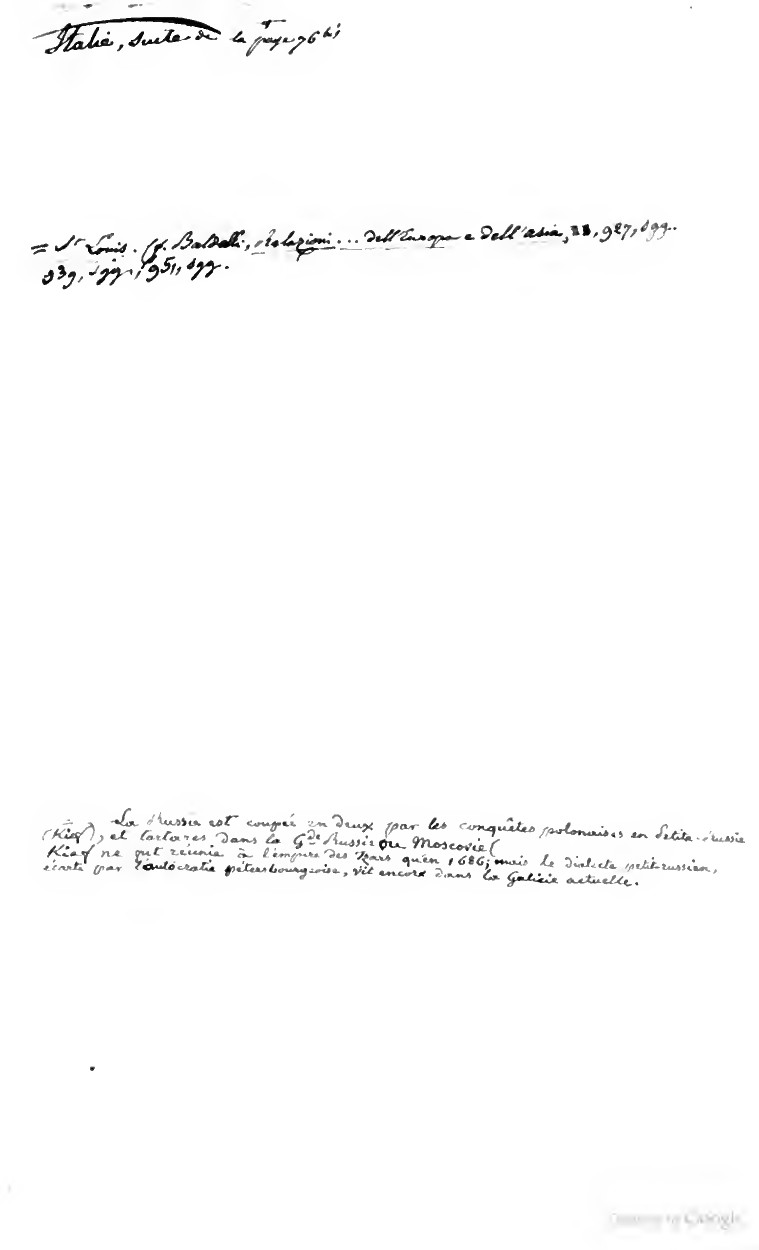 Italie, suite de la page 76 bis
= St Louis. Cf. Baldelli, Relazioni... dell'Europa e dell'asia, II, 927, sgg.
939, sgg., 951, sgg.
= La Russie est coupée en deux par les conquêtes polonaises en Petite-russie
(Kief), et tartares dans la Gde Russie ou Moscovie (
Kief ne fut réunie à l'empire des Tzars qu'en 1686; mais le dialecte petit-russien,
écarté par l'autocratie pétersbourgeoise, vit encore dans la Galicie actuelle.
Google